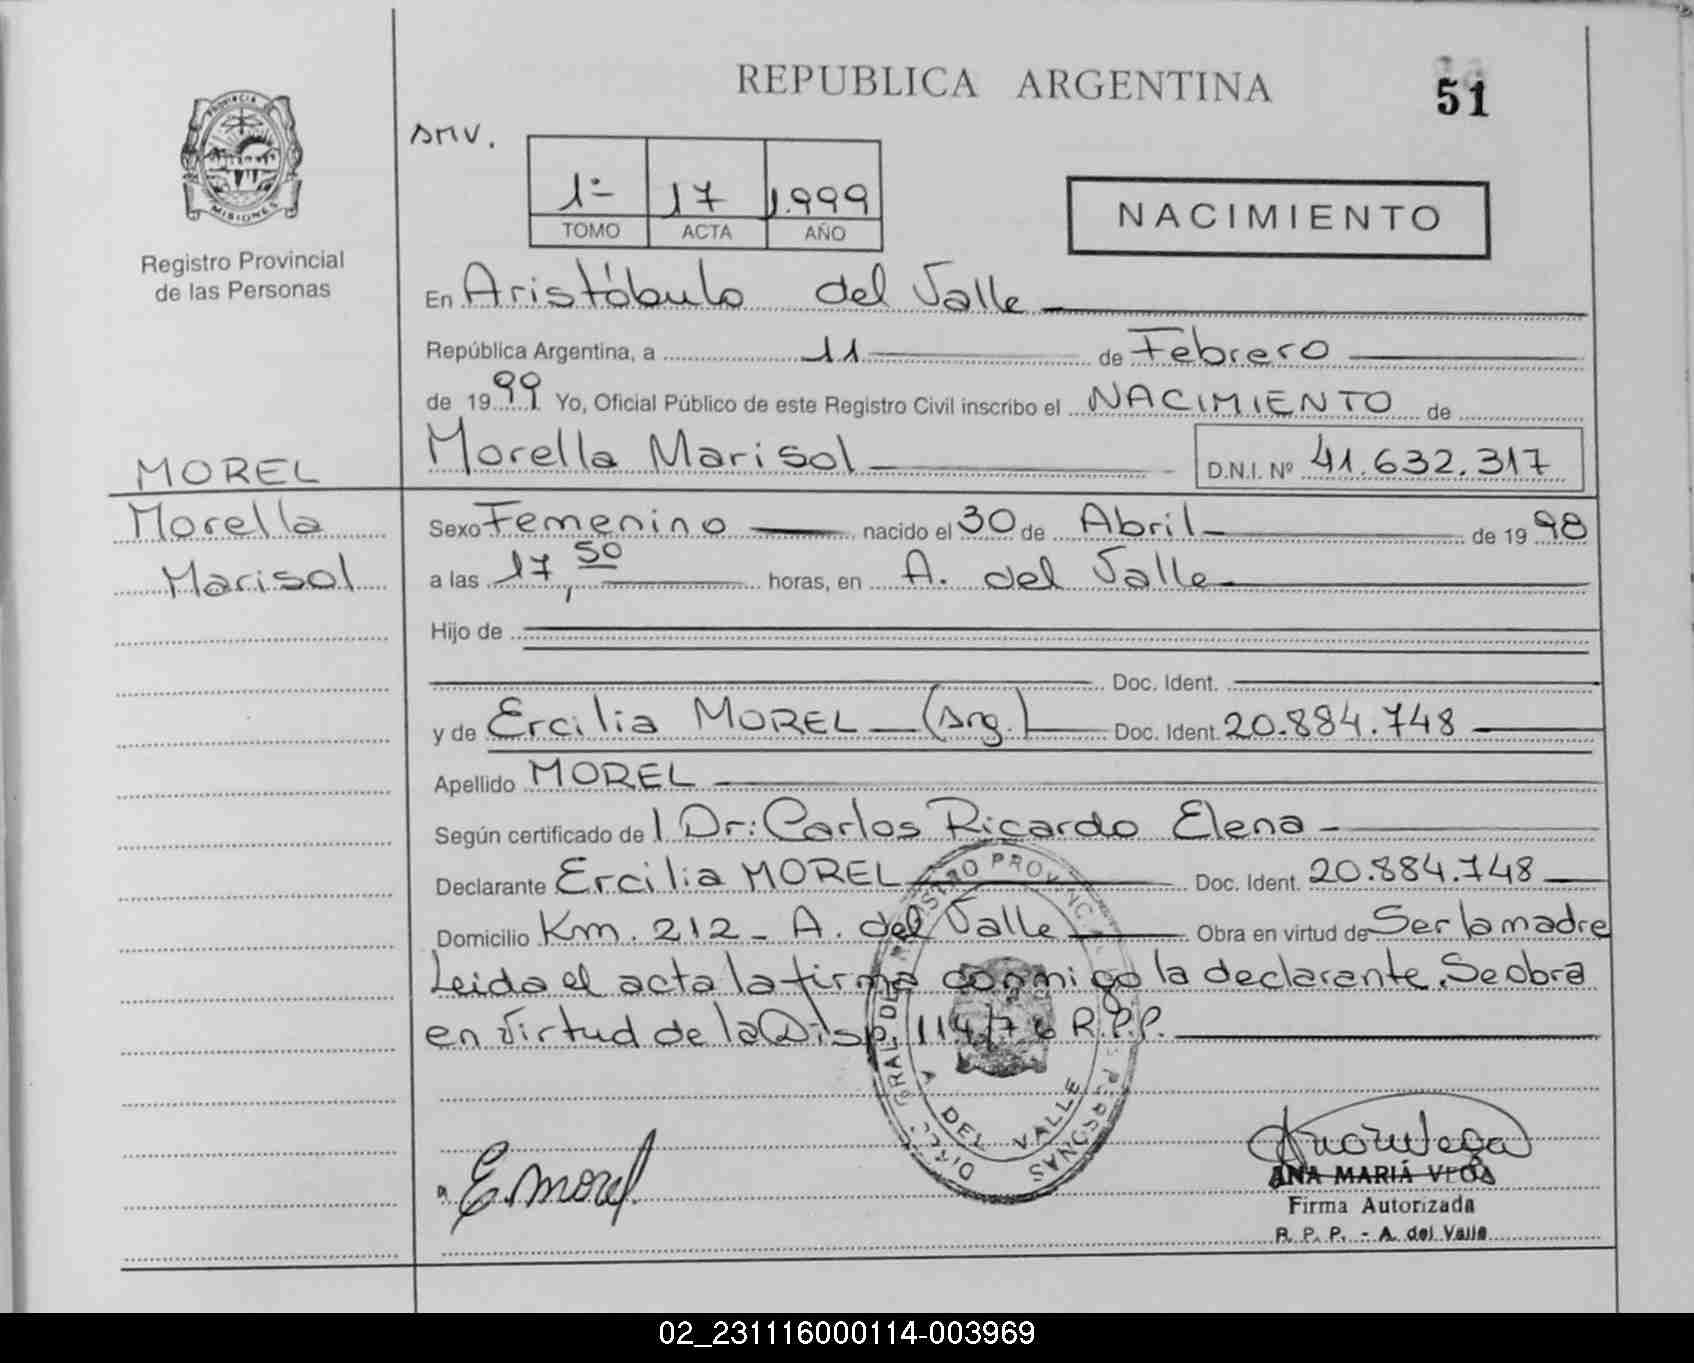 REPUBLICA ARGENTINA
51
PROVINCIA DE
MISIONES
Registro Provincial
de las Personas
AMV.
1º 17 1.999
TOMO ACTA AÑO
NACIMIENTO
En Aristóbulo del Valle
República Argentina, a 11 de Febrero
de 1999 Yo, Oficial Público de este Registro Civil inscribo el NACIMIENTO de
Morella Marisol D.N.I. Nº 41.632.317
MOREL
Morella
Marisol
Sexo Femenino nacido el 30 de Abril de 1998
a las 17,50 horas, en A. del Valle
Hijo de
Doc. Ident.
y de Ercilia MOREL (Arg.) Doc. Ident. 20.884.748
Apellido MOREL
Según certificado de l Dr: Carlos Ricardo Elena
Declarante Ercilia MOREL Doc. Ident. 20.884.748
Domicilio Km. 212 - A. del Valle Obra en virtud de Ser la madre
Leida el acta la firma conmigo la declarante. Se obra
en virtud de la Disp. 114/76 R.P.P.
DIREC. GRAL. DEL REGISTRO PROVINCIAL DE PERSONAS
A DEL VALLE
E. Morel
ANA MARIA VEGA
Firma Autorizada
R. P. P. - A. del Valle
02_231116000114-003969